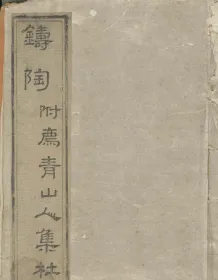 鑄陶附廌青山人集杜